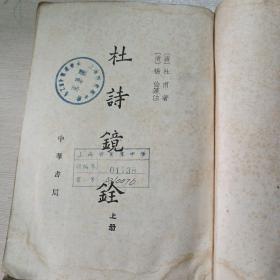 [唐] 杜甫著
[清] 楊倫箋注
杜詩鏡銓
上册
中華書局
上海市
中學
01738